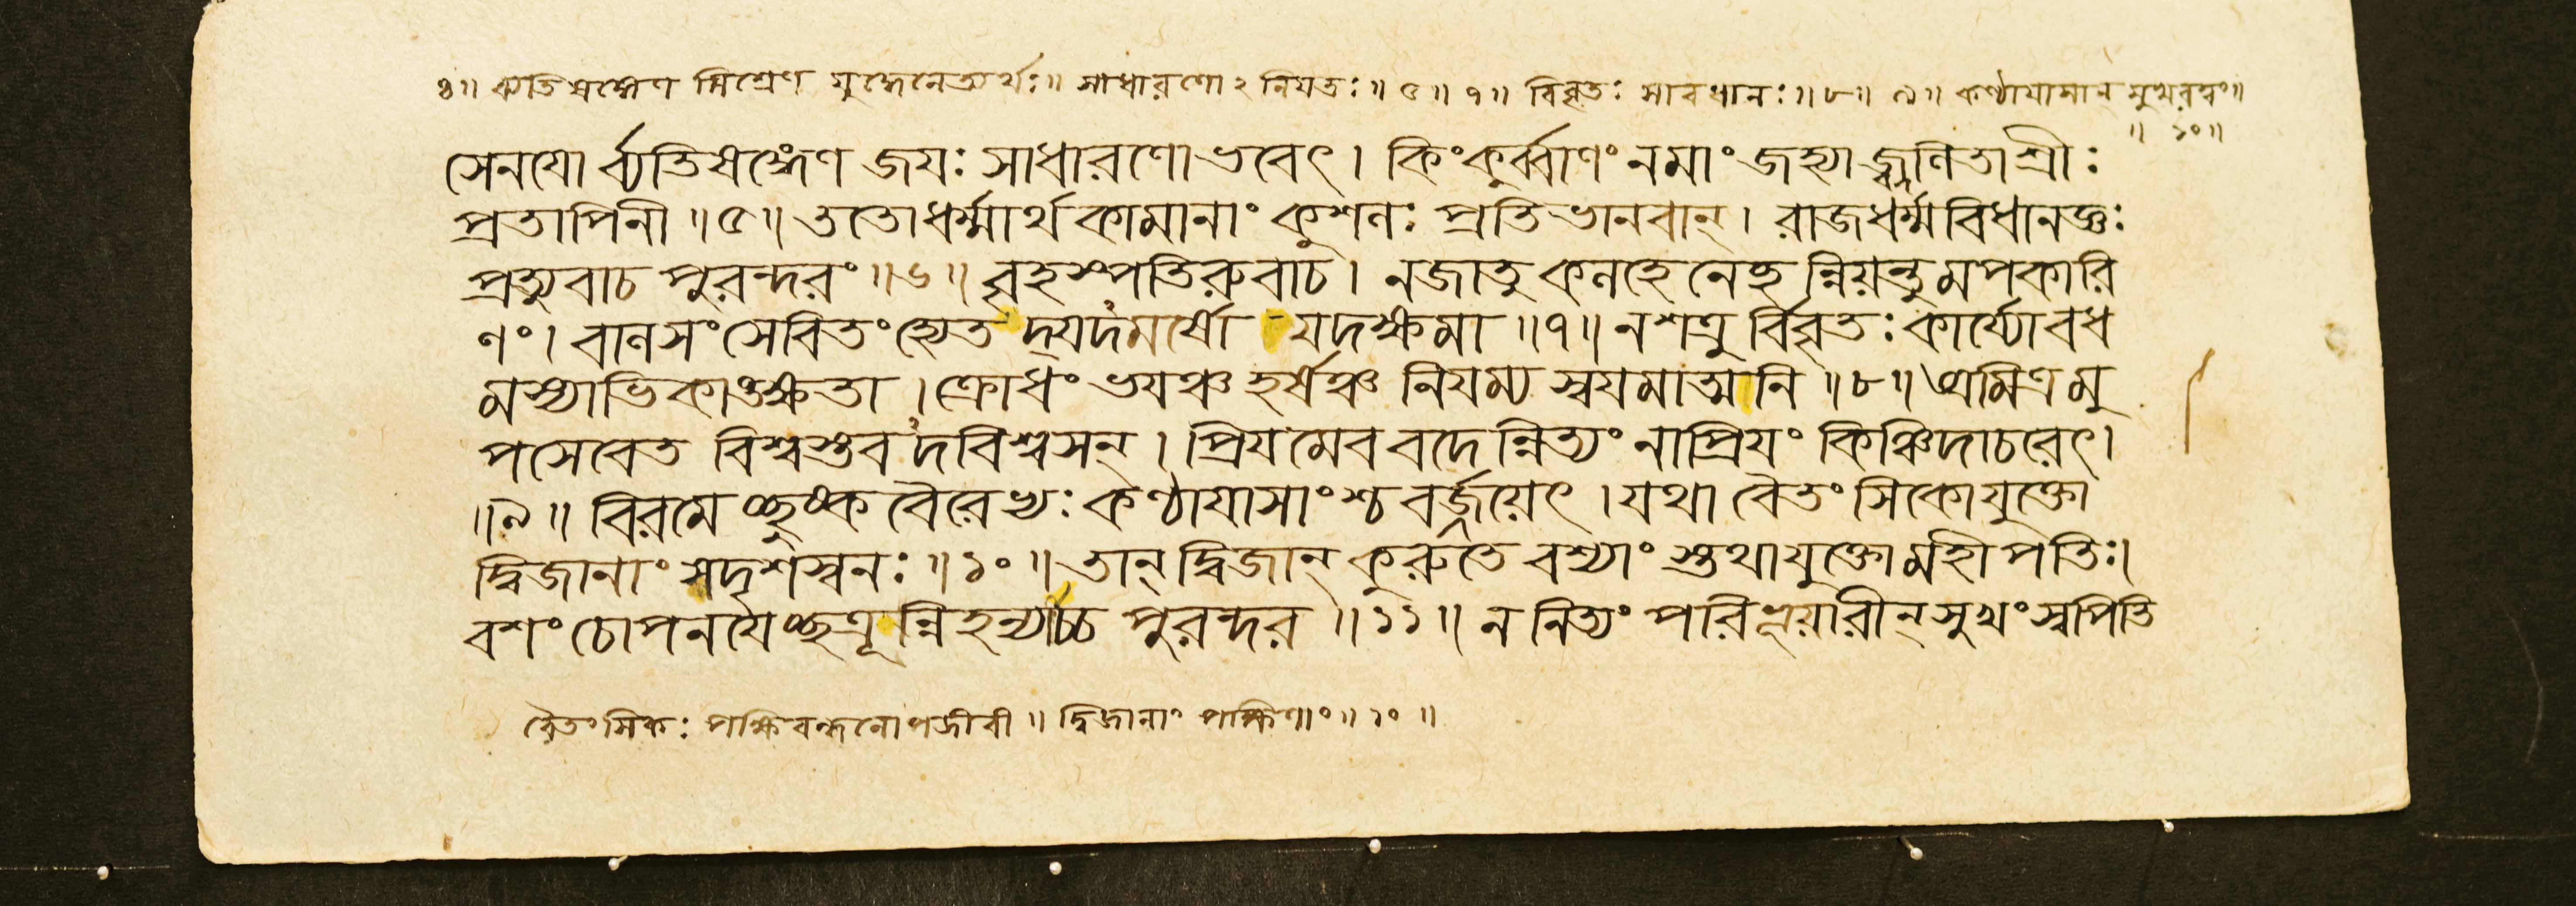 ৪॥ ব্যতিষঙ্গেণ মিশ্রেণ যুদ্ধেনেত্যর্থঃ॥ সাধারণোঽনিয়তঃ॥৫॥৭॥ বিবৃতঃ সাবধানঃ॥৮॥৯॥ কণ্ঠায়াসান্ মুখরবং॥
॥১০॥
সেনয়োর্ব্যতিষঙ্গেণ জয়ঃ সাধারণোভবেৎ। কিংকুর্ব্বাণংনমাং জহ্যাজ্জ্বলিতাশ্রীঃ
প্রতাপিনী॥৫॥ততোধর্ম্মার্থকামানাং কুশলঃ প্রতিভানবান্। রাজধর্ম্মবিধানজ্ঞঃ
প্রত্যুবাচ পুরন্দরং॥৬॥ বৃহস্পতিরুবাচ। নজাতু কলহেনেহন্নিয়ন্তুমপকারি
ণং। বালসংসেবিতংহ্যেতদ্যদমর্ষো যদক্ষমা॥৭॥ নশত্রুর্বিবৃতঃ কার্য্যোবধ
মস্যাভিকাঙ্ক্ষতা। ক্রোধং ভয়ঞ্চ হর্ষঞ্চ নিয়ম্য স্বয়মাত্মনি॥৮॥ অমিত্রমু
পসেবেত বিশ্বস্তবদবিশ্বসন্। প্রিয়মেব বদেন্নিত্যং নাপ্রিয়ং কিঞ্চিদাচরেৎ।
॥৯॥ বিরমেচ্ছুষ্কবৈরেভ্যঃ কণ্ঠায়াসাংশ্চ বর্জ্জয়েৎ। যথা বৈতংসিকোযুক্তো
দ্বিজানাং সদৃশস্বনঃ॥১০॥ তান্ দ্বিজান্ কুরুতে বশ্যাংস্তথাযুক্তোমহীপতিঃ।
বশং চোপনয়েচ্ছত্রূন্নিহন্যাচ্চ পুরন্দর॥১১॥ ন নিত্যং পরিভূয়ারীন্ সুখং স্বপিতি
বৈতংসিকঃ পক্ষিবন্ধনোপজীবী॥ দ্বিজানাং পক্ষিণাং॥১০॥